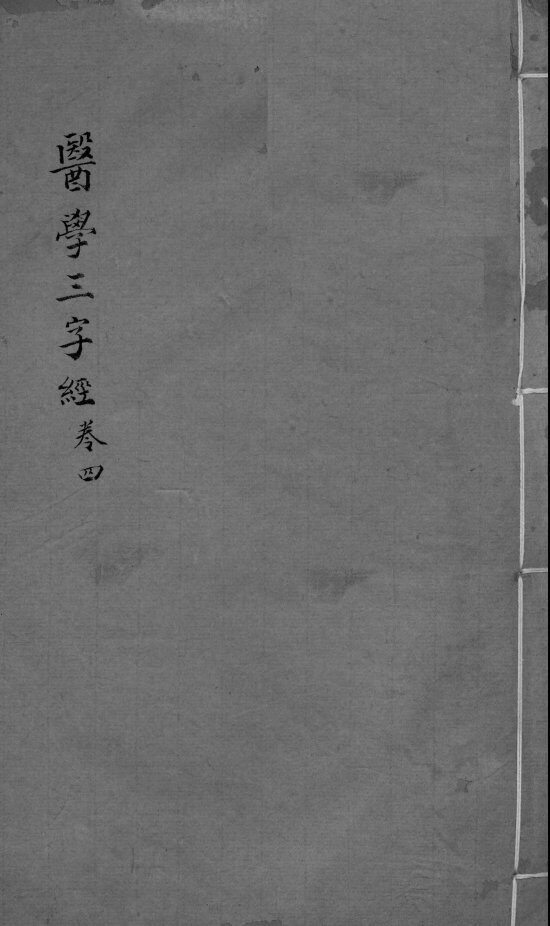 醫學三字經卷四